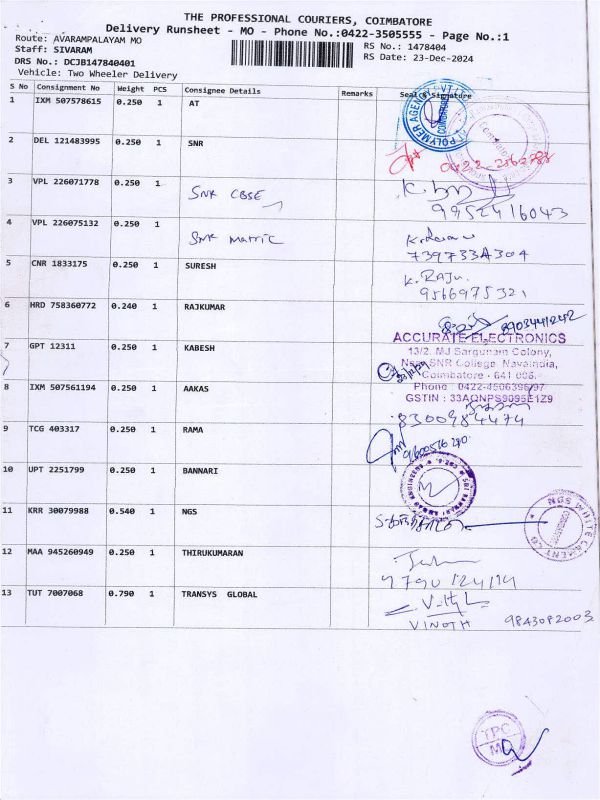 THE PROFESSIONAL COURIERS, COIMBATORE
Delivery Runsheet - MO - Phone No.:0422-3505555 - Page No.:1
Route: AVARAMPALAYAM MO
Staff: SIVARAM
DRS No.: DCJB147840401
Vehicle: Two Wheeler Delivery
RS No.: 1478404
RS Date: 23-Dec-2024
S No Consignment No Weight PCS Consignee Details Remarks Seal & Signature
1 IXM 507578615 0.250 1 AT
POLYMER AGENCY
COIMBATORE
2 DEL 121483995 0.250 1 SNR
3 VPL 226071778 0.250 1 SNR CBSE
9952416043
4 VPL 226075132 0.250 1 SNR matric
739733A304
5 CNR 1833175 0.250 1 SURESH
K. RAJU.
9566975321
6 HRD 758360772 0.240 1 RAJKUMAR
8903441242
7 GPT 12311 0.250 1 KABESH
ACCURATE ELECTRONICS
13/2, MJ Sargunam Colony,
Near SNR College, Navaindia,
Coimbatore - 641 006.
Phone : 0422-4506396/97
GSTIN : 33AQNPS9095E1Z9
8 IXM 507561194 0.250 1 AAKAS
8300984474
9 TCG 403317 0.250 1 RAMA
10 UPT 2251799 0.250 1 BANNARI
SRI BANNARI AMMAN ENGINEERS
11 KRR 30079988 0.540 1 NGS
12 MAA 945260949 0.250 1 THIRUKUMARAN
13 TUT 7007068 0.790 1 TRANSYS GLOBAL
VINOTH 9843082003
TPC
MO